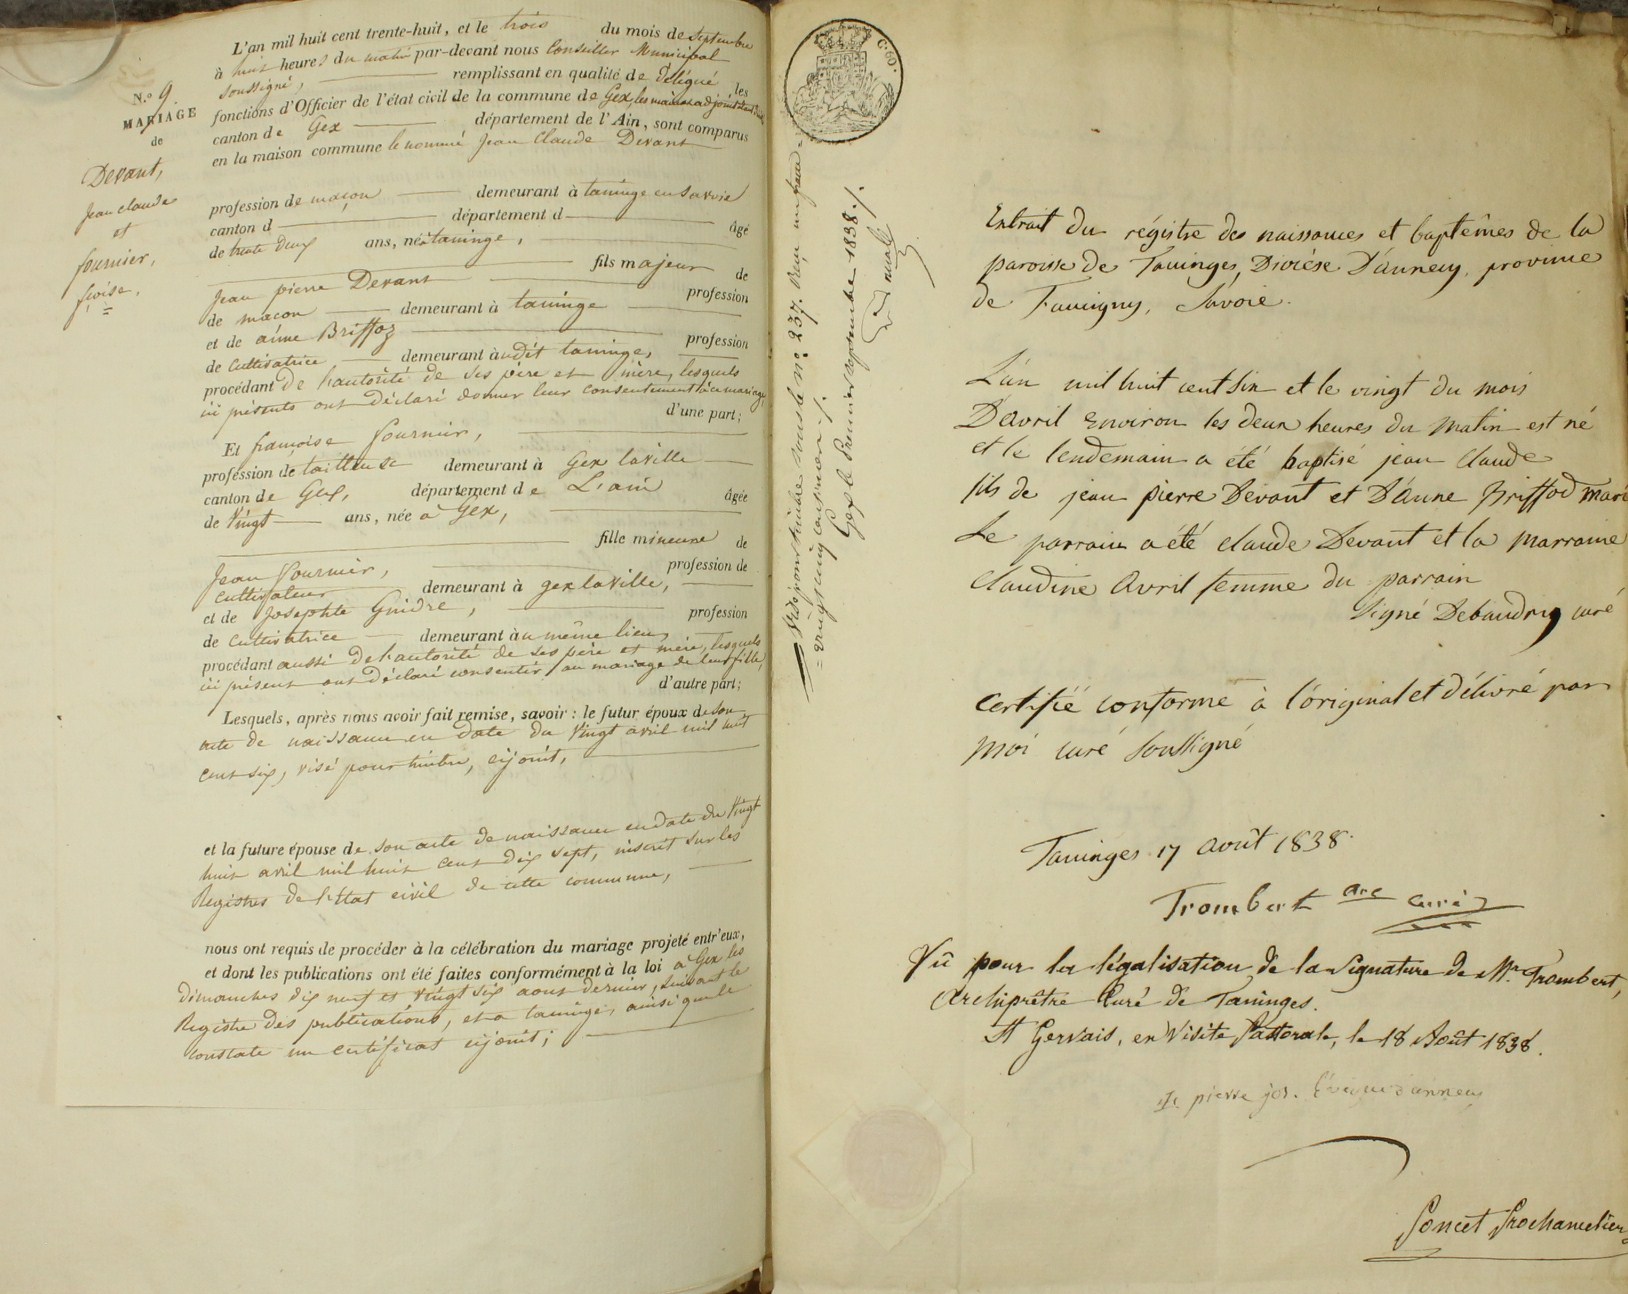 N.o 9
MARIAGE
de
Devant,
Jean claude
et
fournier,
fçoise.
L'an mil huit cent trente-huit, et le trois du mois de Septembre
à huit heures du matin par-devant nous Conseiller Municipal
soussigné, remplissant en qualité de délégué les
fonctions d'Officier de l'état civil de la commune de Gex, les maire et adjoint
canton de Gex département de l'Ain, sont comparus
en la maison commune le nommé Jean Claude Devant
profession de maçon demeurant à taninge en Savoie
canton d département d
âgé
de trente deux ans, né à taninge,
fils majeur de
Jean pierre Devant profession
de maçon demeurant à taninge
et de anne Briffoz profession
de Cultivatrice demeurant àudit taninge,
procédant de l'autorité de ses père et mère, lesquels
ici présents ont déclaré donner leur consentement à ce mariage
d'une part;
Et françoise fournier,
profession de tailleuse demeurant à Gex laville
canton de Gex, département de L'ain âgée
de Vingt ans, née à Gex,
fille mineure de
Jean fournier, profession de
Cultivateur demeurant à gex laville,
et de Josephte Guidre, profession
de Cultivatrice demeurant àu même lieu,
procédant aussi de l'autorité de ses père et mère, lesquels
ici présent ont déclaré consentir au mariage de leur fille,
d'autre part;
Lesquels, après nous avoir fait remise, savoir : le futur époux de son
acte de naissance en date du Vingt avril mil huit
cent six, visé pour timbre, cijoint,
et la future épouse de son acte de naissance en date du Vingt
huit avril mil huit cent dix sept, inscrit sur les
Registres de l'Etat civil de cette commune,
nous ont requis de procéder à la célébration du mariage projeté entr'eux,
et dont les publications ont été faites conformément à la loi à Gex les
dimanches dix neuf et vingt six aout dernier, suivant le
Registre des publications, et à taninge, ainsi que le
constate un certificat cijoint;
C. 60.
Visé pour timbre sous le no. 237. Reçu
vingt cinq centimes
Gex le premier septembre 1838.
Extrait du régistre des naissances et baptêmes de la
paroisse de Taninges, Diocèse D'annecy, province
de Faucigny, Savoie.
L'an mil huit cent six et le vingt du mois
D'avril Environ les deux heures du matin est né
et le lendemain a été baptisé jean Claude
fils de jean pierre Devant et D'anne Briffod mariés
Le parrain a été claude Devant et la marraine
Claudine Avril femme du parrain
Signé Debaudry curé
Certifié conforme à l'original et délivré par
moi curé soussigné
Taninges 17 août 1838.
Trombert arc curé
Vû pour la légalisation de la signature de Mr. Trombert,
Archiprêtre Curé de Taninges.
St Gervais, en Visite Pastorale, le 18 Août 1838.
pierre jos. Evêque d'annecy
Poncet Prochancelier